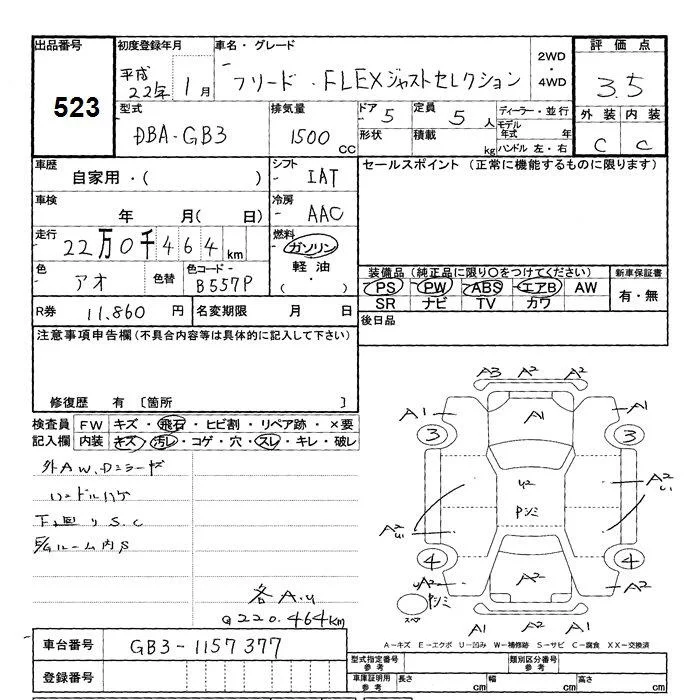 出品番号 初度登録年月 車名・グレード 評価点
523 平成22年 1月 フリード・FLEXジャストセレクション 2WD・4WD 3.5
型式 排気量 ドア 定員 ディーラー・並行 外装 内装
DBA-GB3 1500cc 5 5人 モデル年式 年 C C
形状 積載 kg ハンドル 左・右
車歴 シフト セールスポイント(正常に機能するものに限ります)
自家用・( ) IAT
車検 冷房
年 月( 日) AAC
走行 燃料
22万0千464km ガソリン
色 色替 色コード 軽油 装備品(純正品に限り○をつけてください) 新車保証書
アオ B557P ・( ) PS PW ABS エアB AW 有・無
SR ナビ TV カワ
R券 11,860円 名変期限 月 日 後日品
注意事項申告欄(不具合内容等は具体的に記入して下さい)
修復歴 有 〔箇所 〕
検査員 FW キズ・飛石・ヒビ割・リペア跡・×要
記入欄 内装 キズ・汚レ・コゲ・穴・スレ・キレ・破レ
外AW、Dミラーキズ
ハンドルハゲ
下回りS.C
E/Gルーム内S
各A.U
Q220.464km
A3 A2 A2
A1 A1 A1
3 3
U2 A2
Pシミ
A2
4 4
A2 A2 A2
Pシミ
スペア
A1 A1 A2
A-キズ E-エクボ U-凹み W-補修跡 S-サビ C-腐食 XX-交換済
車台番号 GB3-1157377
型式指定番号 参考 類別区分番号 参考
登録番号 車庫証明用 参考 長さ cm 幅 cm 高さ cm